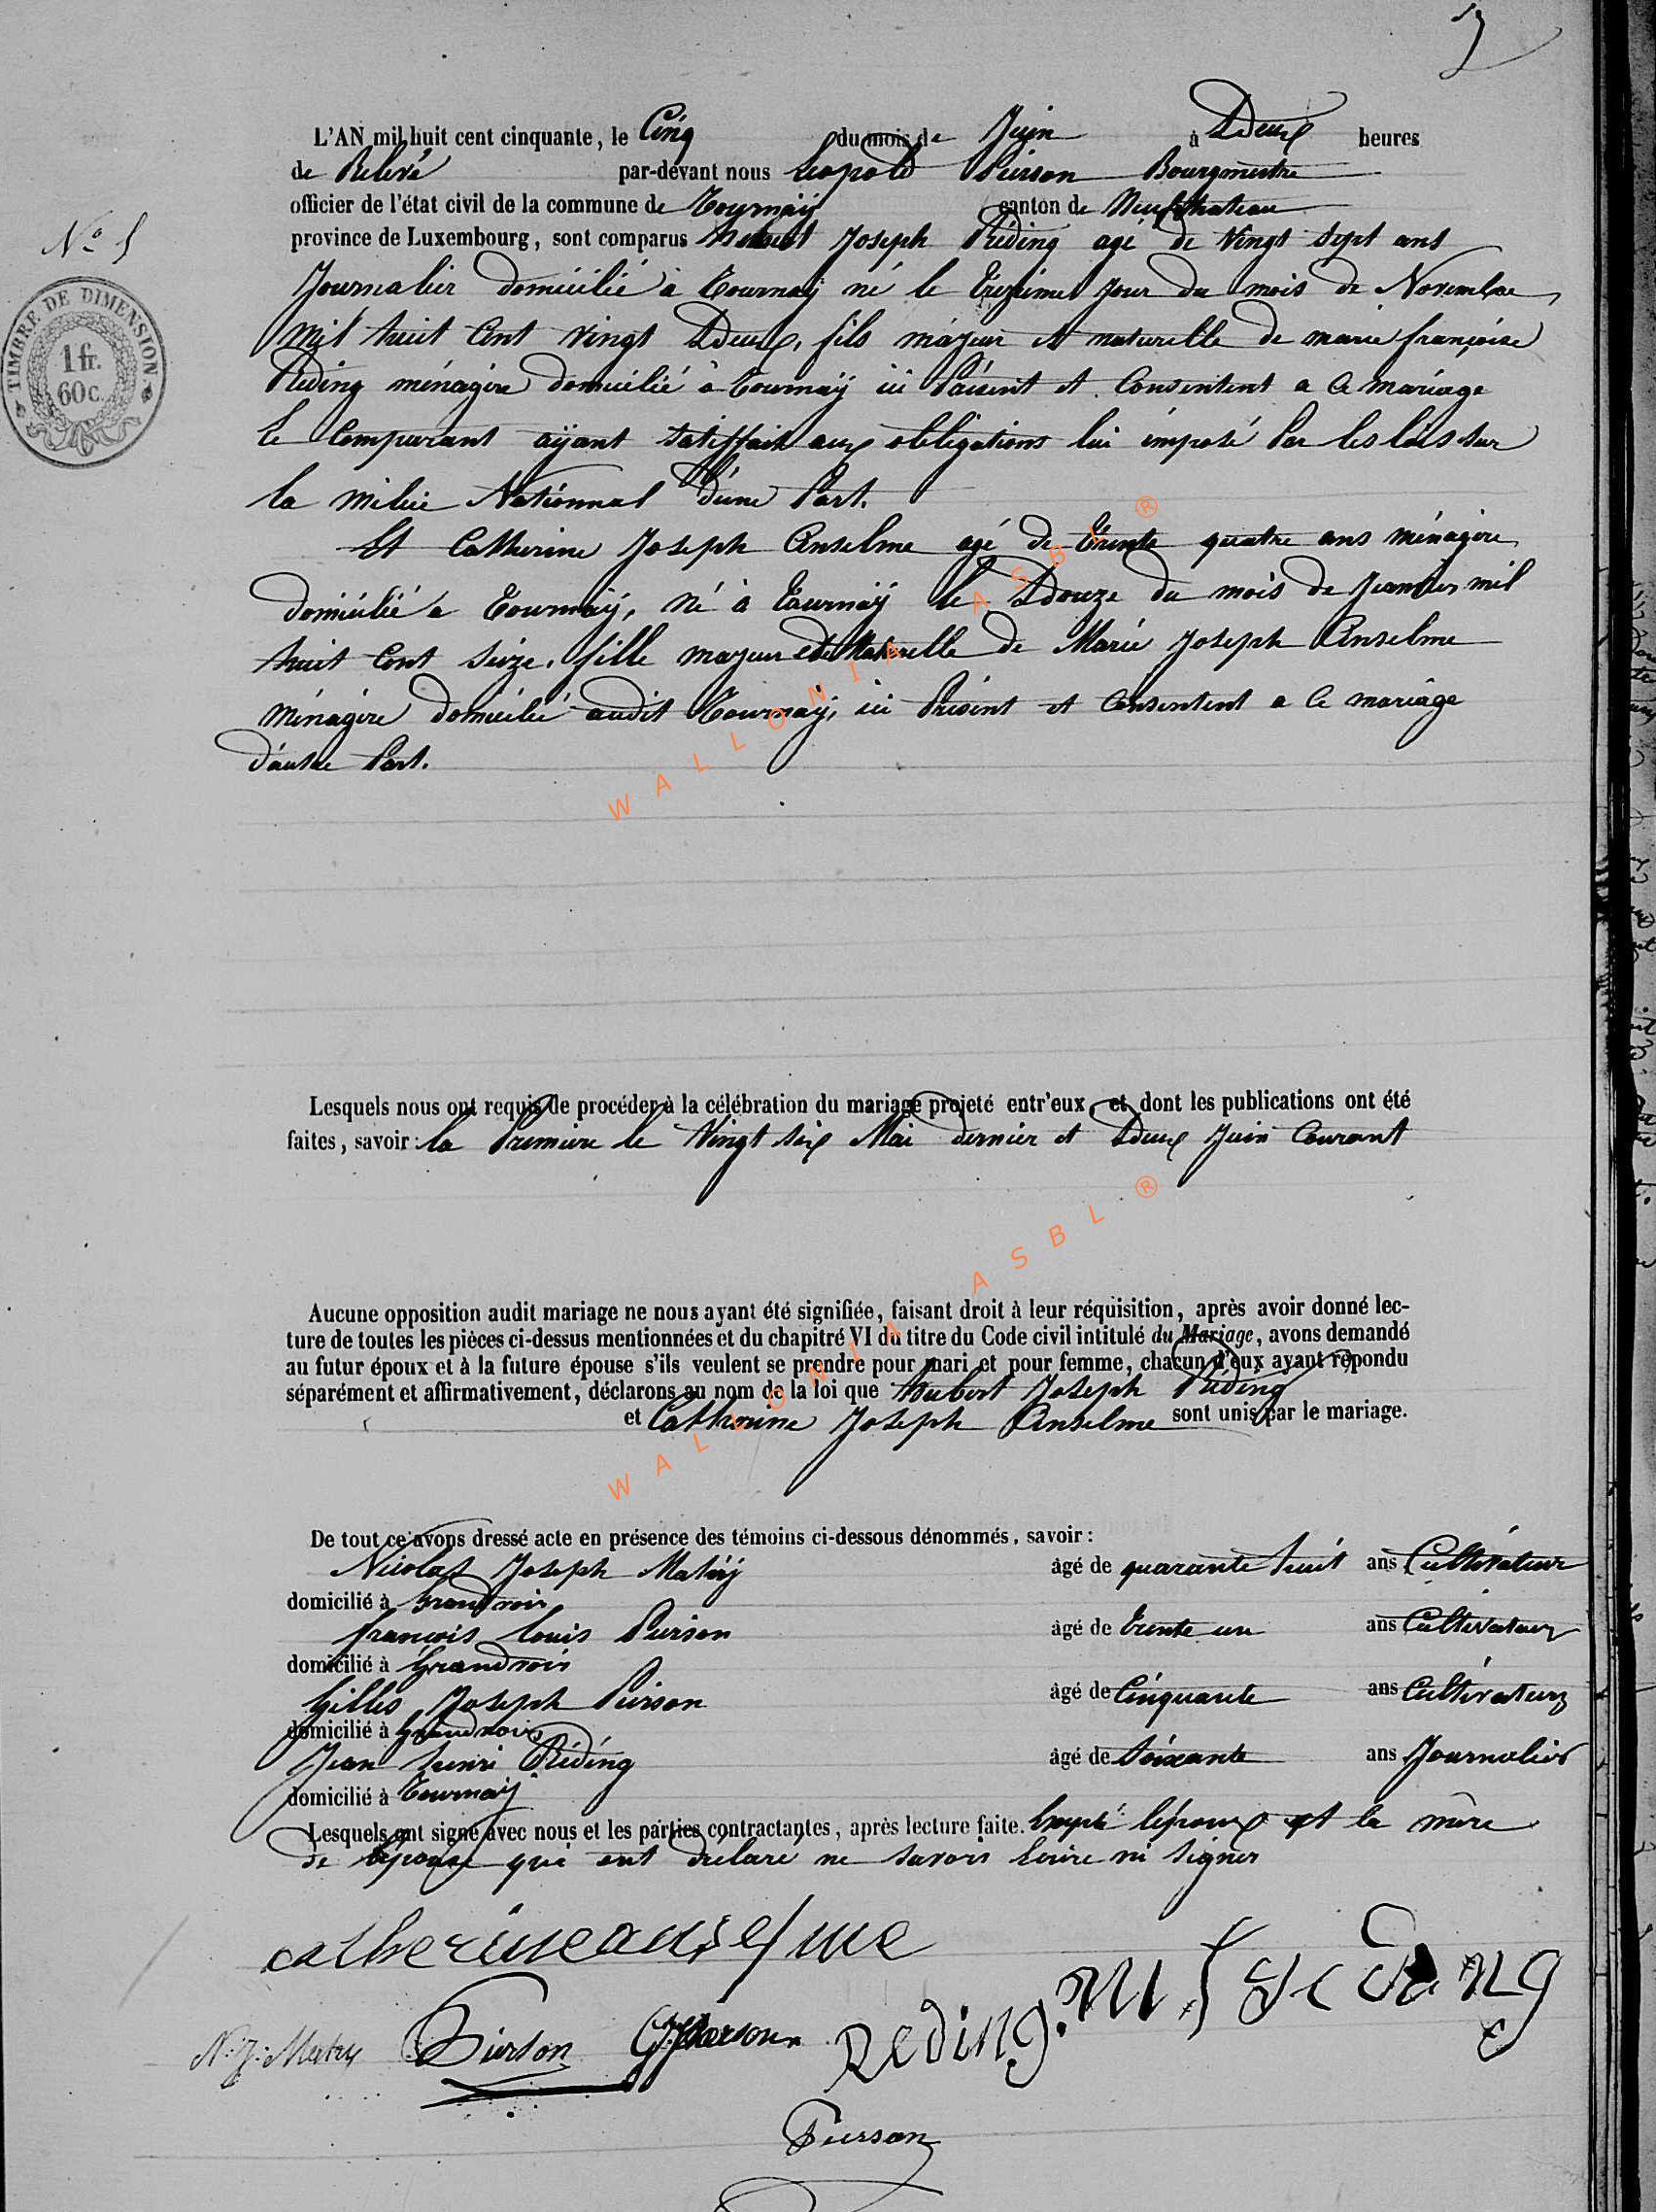 L'AN mil huit cent cinquante, le Cinq du mois de Juin à Deux heures
de Relevé par-devant nous Leopold Pierson Bourgmestre
officier de l'état civil de la commune de Tournaÿ canton de Neufchateau
N° 5
province de Luxembourg, sont comparus Hubert Joseph Réding agé de Vingt sept ans
TIMBRE DE DIMENSION
1 fr.
60 c.
Journalier domicilié à Tournaÿ né le treizième Jour du mois de Novembre
mil huit Cent vingt Deux, fils majeur et naturelle de marie françoise
Réding ménagère domicilié à Tournaÿ ici Présent et Consentent a ce mariage
le Comparant aÿant satisfait aux obligations lui imposé Par les lois sur
la milice National d'une Part.
Et Catherine Joseph Anselme agé de trente quatre ans ménagère
domicilié a Tournaÿ, né à Tournaÿ le Douze du mois de Janvier mil
huit Cent seize, fille majeur et Naturelle de Marie Joseph Anselme
ménagère domicilié audit Tournaÿ, ici Présent et Consentent a ce mariage
d'autre Part.
WALLONIA ASBL ®
Lesquels nous ont requis de procéder à la célébration du mariage projeté entr'eux, et dont les publications ont été
faites, savoir : la Premiere le Vingt six Mai dernier et Deux Juin Courant
Aucune opposition audit mariage ne nous ayant été signifiée, faisant droit à leur réquisition, après avoir donné lec-
ture de toutes les pièces ci-dessus mentionnées et du chapitré VI du titre du Code civil intitulé du Mariage, avons demandé
au futur époux et à la future épouse s'ils veulent se prendre pour mari et pour femme, chacun d'eux ayant répondu
séparément et affirmativement, déclarons au nom de la loi que hubert Joseph Réding
et Catherine Joseph Anselme sont unis par le mariage.
WALLONIA ASBL ®
De tout ce avons dressé acte en présence des témoins ci-dessous dénommés, savoir :
Nicolas Joseph Matrÿ âgé de quarante huit ans Cultivateur
domicilié à Grandvoir
François Louis Pierson âgé de trente un ans Cultivateur
domicilié à Grandvoir
Gilles Joseph Pierson âgé de Cinquante ans Cultivateur
domicilié à Grandvoir
Jean henri Réding âgé de Soixante ans Journalier
domicilié à Tournaÿ
Lesquels ont signé avec nous et les parties contractantes, après lecture faite. Excepté l'époux et la mère
de l'épouse qui ont declaré ne savoir Ecrire ni signer
catherine anselme
mf reding
N. J. Matry Pierson GJPierson Reding
Pierson